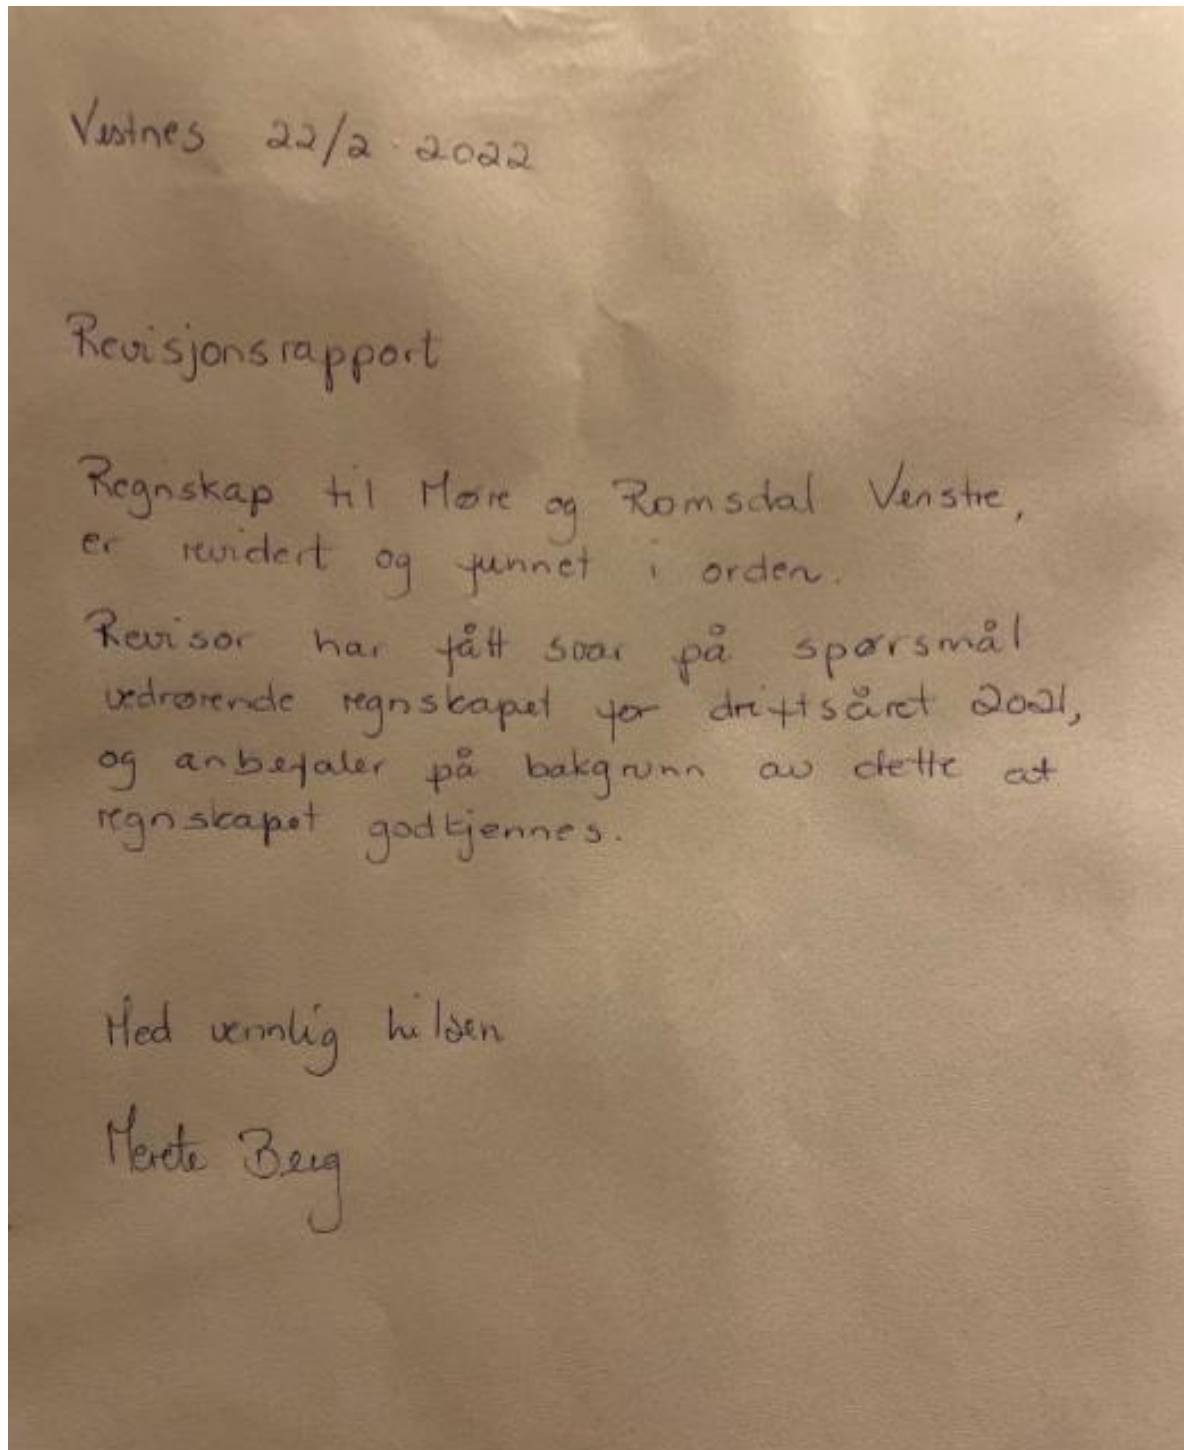 Vestnes 22/2 · 2022
Revisjonsrapport
Regnskap til Møre og Romsdal Venstre,
er revidert og funnet i orden.
Revisor har fått svar på spørsmål
vedrørende regnskapet for driftsåret 2021,
og anbefaler på bakgrunn av dette at
regnskapet godkjennes.
Med vennlig hilsen
Merete Berg